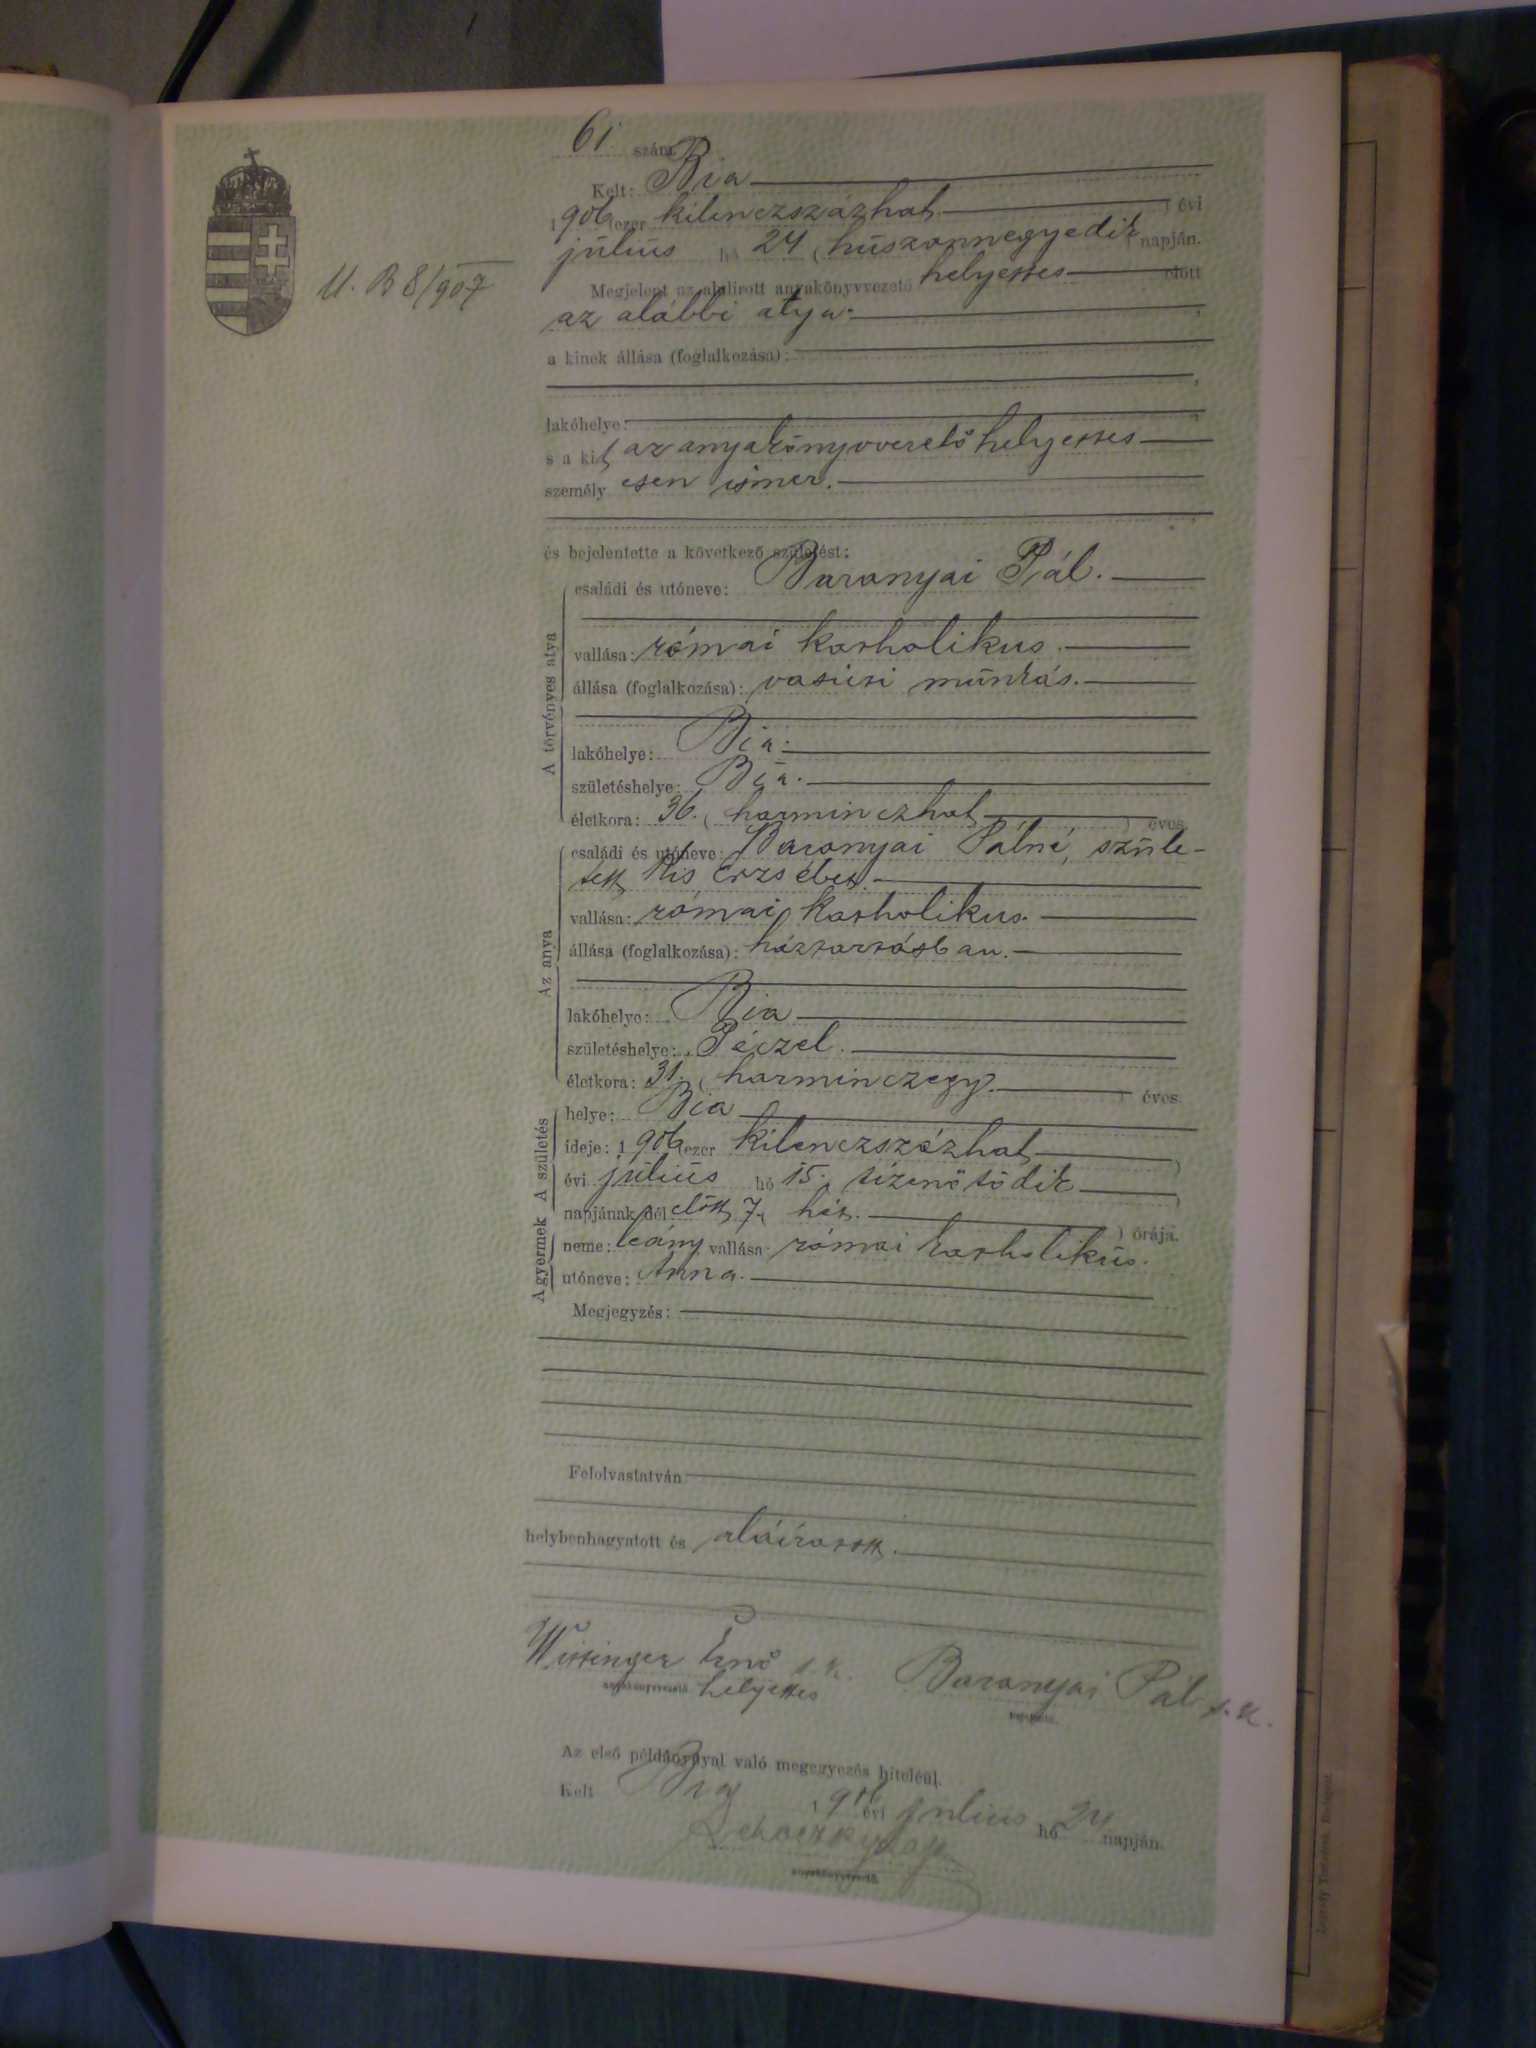 61 szám
Kelt: Bia
1906 (ezer kilenczszázhat ) évi
július hó 24 (huszonnegyedik napján.
M. B 8/907
Megjelent az alulirott anyakönyvvezető helyettes előtt
az alábbi atya.
a kinek állása (foglalkozása):
lakóhelye:
s a kit az anyakönyvvezető helyettes
személy esen ismer.
és bejelentette a következő születést:
A törvényes atya
családi és utóneve: Baranyai Pál.
vallása: római katholikus.
állása (foglalkozása): vasúti munkás.
lakóhelye: Bia.
születéshelye: Bia.
életkora: 36. (harminczhat ) éves.
Az anya
családi és utóneve: Baranyai Pálné, szüle-
tett Kis Erzsébet.
vallása: római katholikus.
állása (foglalkozása): háztartásban.
lakóhelye: Bia
születéshelye: Péczel.
életkora: 31. (harminczegy. ) éves.
A születés
helye: Bia
ideje: 1906 (ezer kilenczszázhat )
évi július hó 15. tizenötödik )
napjának dél előtt 7. (hét. ) órája.
A gyermek
neme: leány vallása: római katholikus.
utóneve: Anna.
Megjegyzés:
Felolvastatván
helybenhagyatott és aláíratott.
Wissinger Ernő s. k. Baranyai Pál s. k.
anyakönyvvezető helyettes bejelentő.
Az első példánynyal való megegyezés hiteléül.
Kelt Bia 1906 évi július hó 24 napján.
anyakönyvvezető.